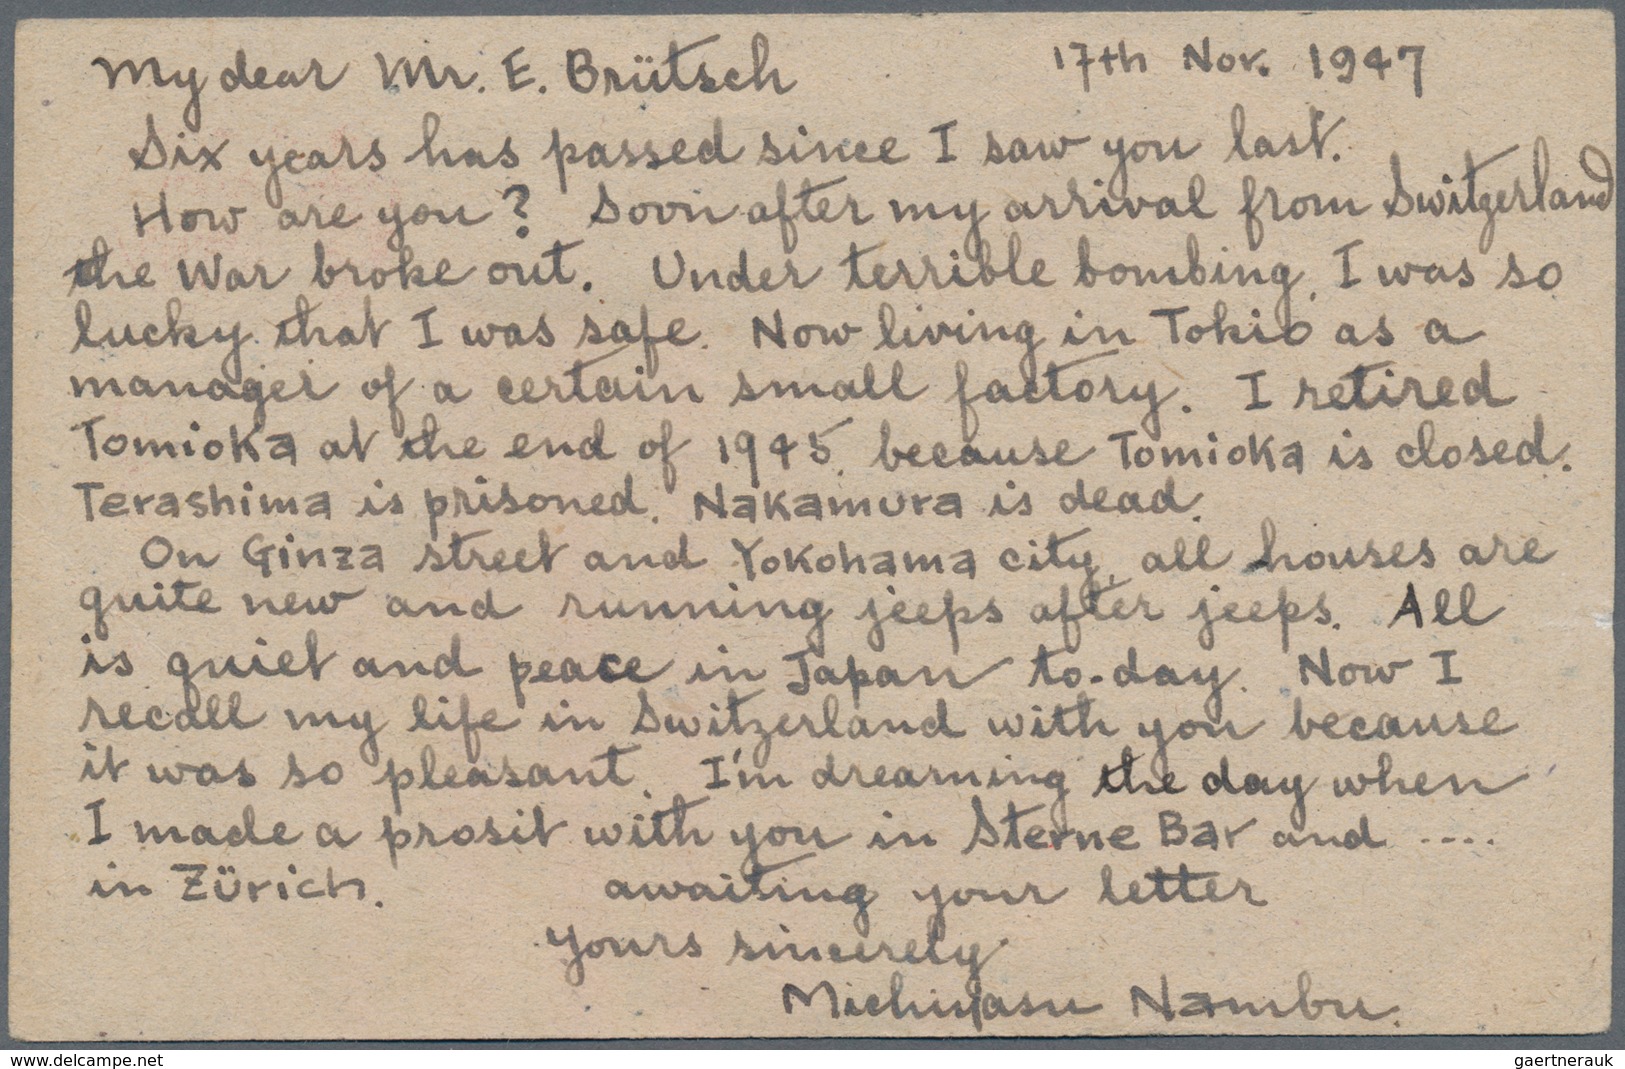 My dear Mr. E. Brütsch 17th Nov. 1947
Six years has passed since I saw you last.
How are you? Soon after my arrival from Switzerland
the War broke out. Under terrible bombing, I was so
lucky that I was safe. Now living in Tokio as a
manager of a certain small factory. I retired
Tomioka at the end of 1945, because Tomioka is closed.
Terashima is prisoned. Nakamura is dead.
On Ginza street and Yokohama city, all houses are
quite new and running jeeps after jeeps. All
is quiet and peace in Japan to-day. Now I
recall my life in Switzerland with you because
it was so pleasant. I'm dreaming the day when
I made a prosit with you in Sterne Bar and ....
in Zürich. awaiting your letter
Yours sincerely
Michiyasu Nambu.
www.delcampe.net
gaertnerauk